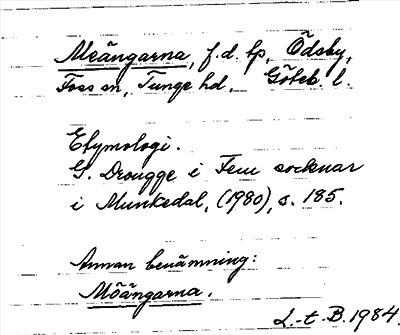 Meängarna, f.d. tp, Ödsby,
Foss sn, Tunge hd, Göteb. l.
Etymologi.
G. Drougge i Fem socknar
i Munkedal, (1980), s. 185.
Annan benämning:
Möängarna.
L-t B. 1984